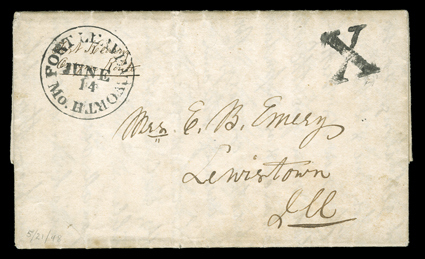 FORT LEAVENWORTH. Mo.
JUNE
14
X
Mrs. E. B. Emery
Lewistown
Ill